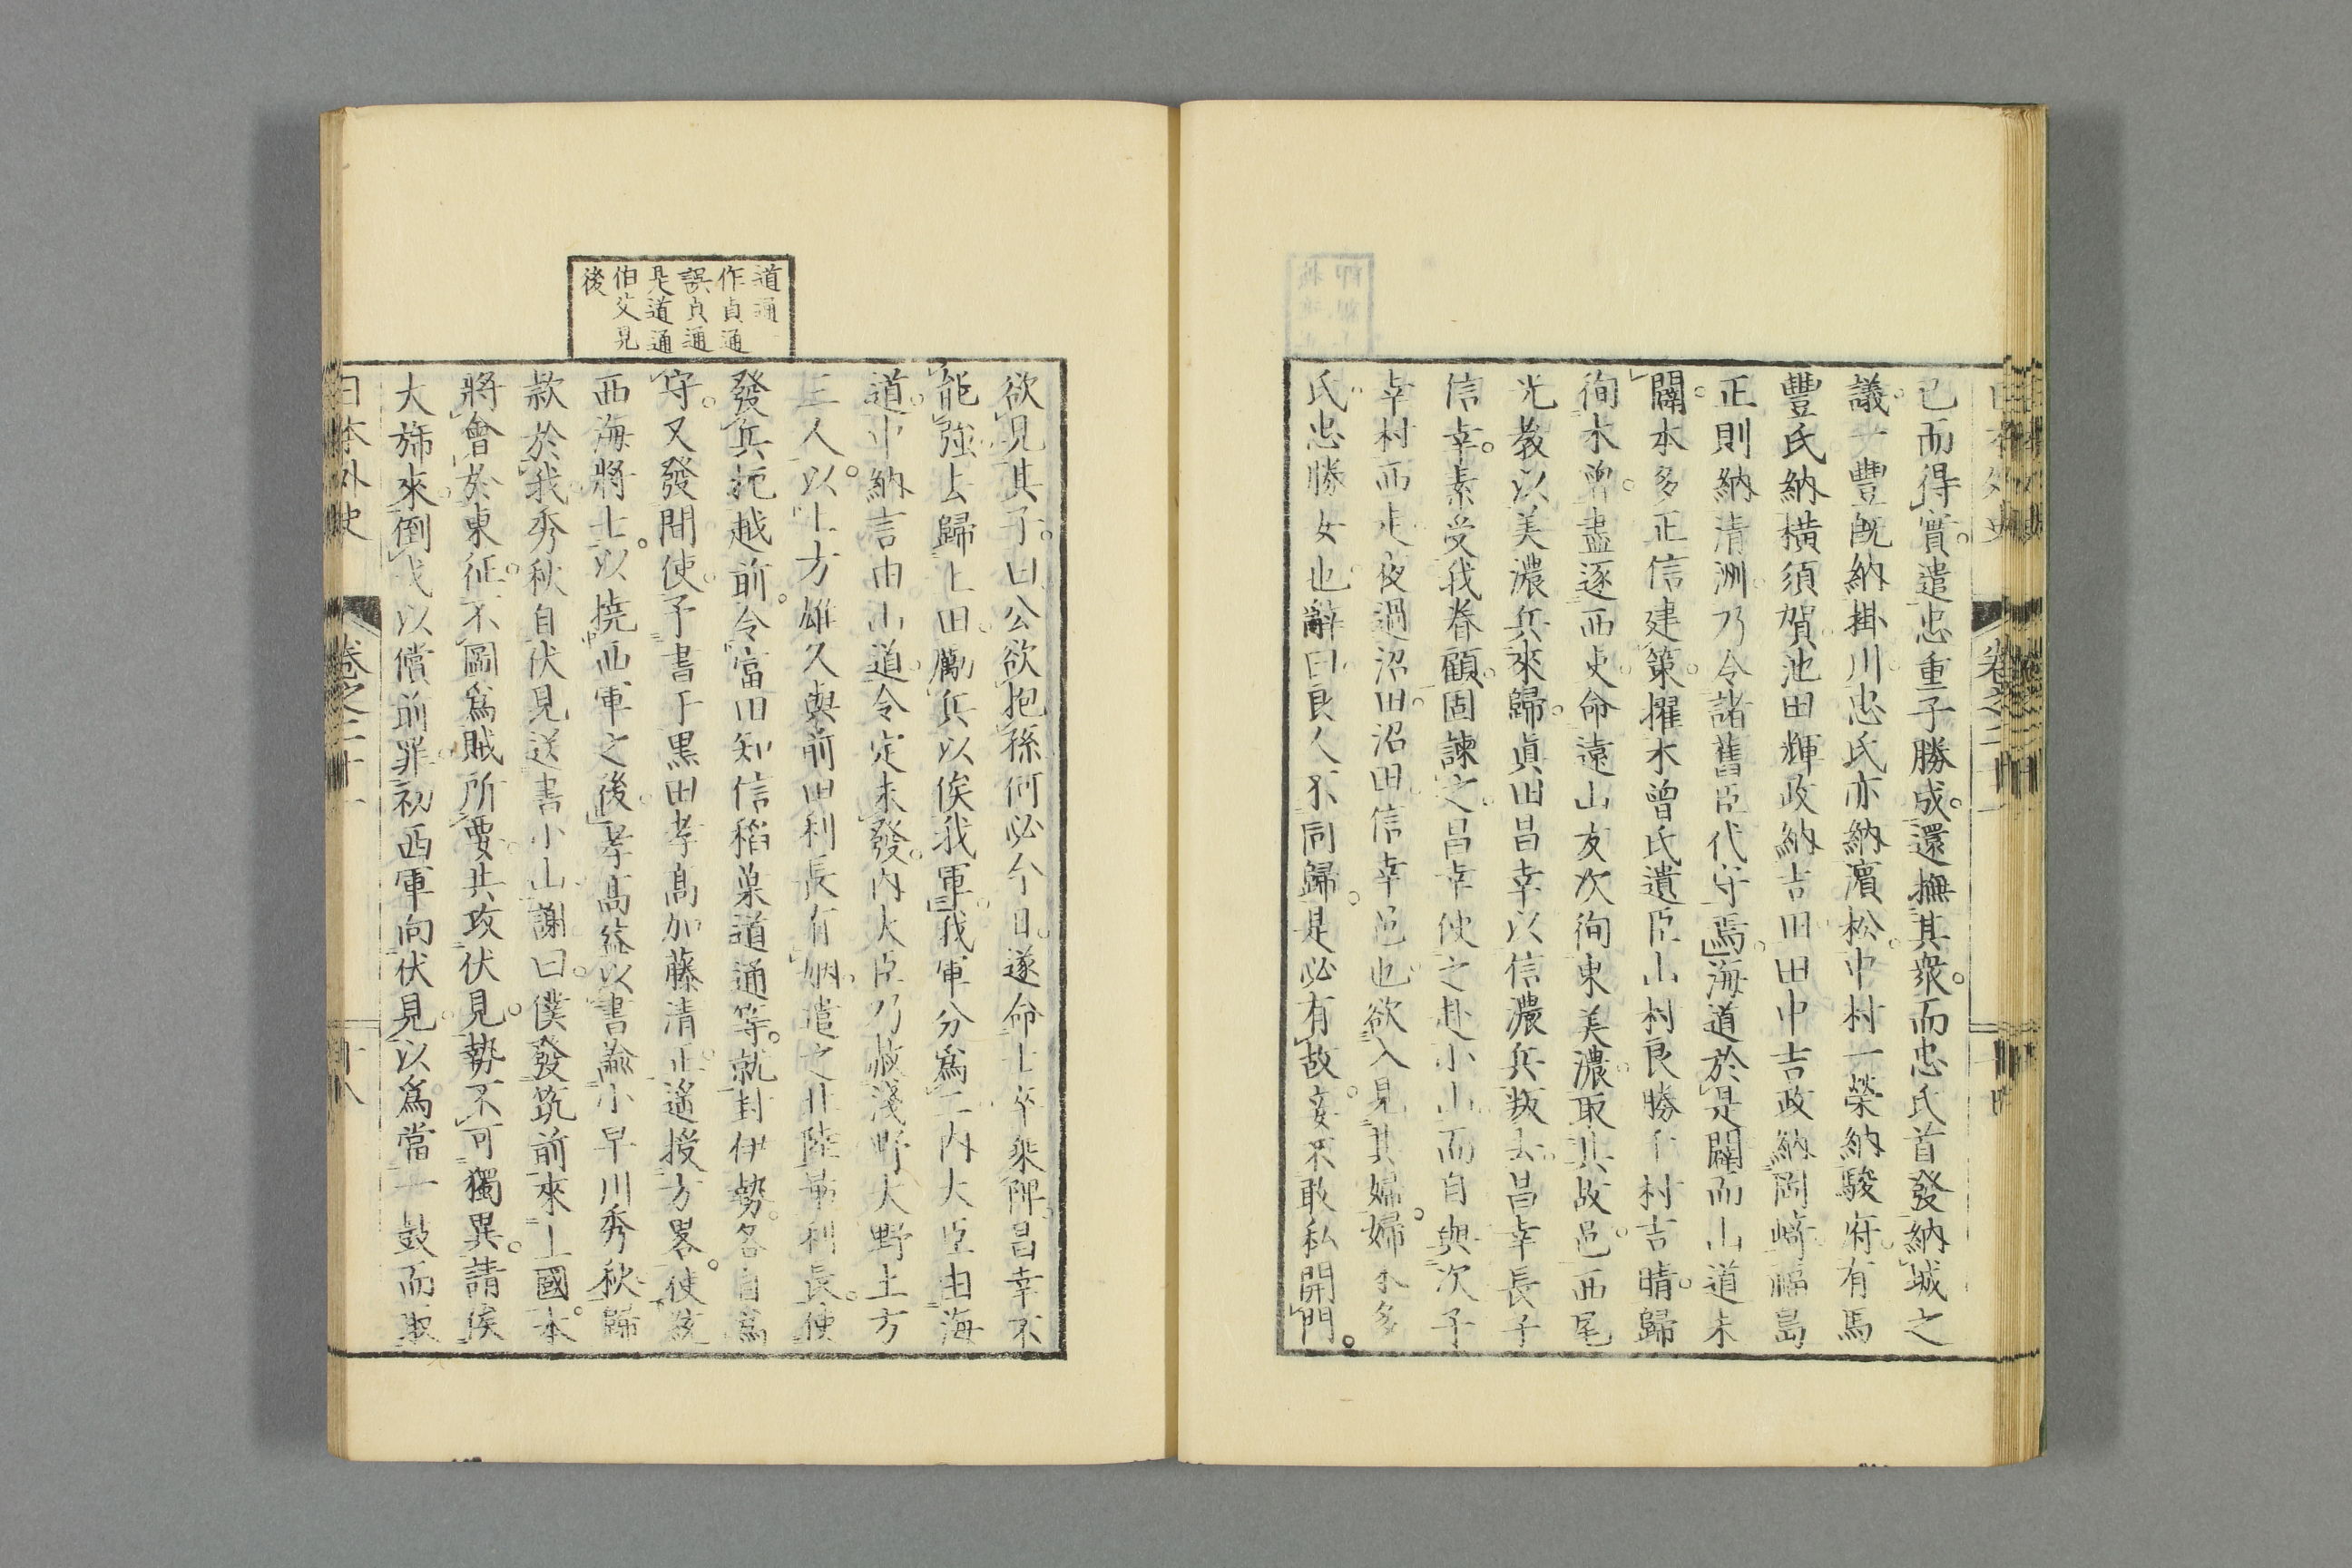 已而得實遣忠重子勝成還撫其衆而忠氏首發納城之
議一豐既納掛川忠氏亦納濵松中村一榮納駿府有馬
豐氏納橫須賀池田輝政納吉田田中吉政納岡崎福島
正則納清洲乃令諸舊臣代守焉海道於是闢而山道未
闢本多正信建策擢木曾氏遺臣山村良勝千村吉晴歸
徇木曾盡逐西吏命遠山友次徇東美濃取其故邑西尾
光教以美濃兵來歸眞田昌幸以信濃兵叛去昌幸長子
信幸素受我眷顧固諫之昌幸使之赴小山而自與次子
幸村西走夜過沼田沼田信幸邑也欲入見其婦婦本多
氏忠勝女也辭曰良人不同歸是必有故妾不敢私開門
道通
作貞通
誤貞通
是道通
伯父見
後
欲見其子曰公欲抱孫何必今日遂命士卒乘陴昌幸不
能強去歸上田勵兵以俟我軍我軍分爲二内大臣由海
道中納言由山道令定未發内大臣乃議淺野大野土方
三人以土方雄久與前田利長有姻遣之北陸帥利長使
發兵扼越前令富田知信稻葉道通等就封伊勢各自爲
守又發間使予書于黒田孝高加藤清正遙授方畧使敎
西海將士以撓西軍之後孝高益以書諭小早川秀秋歸
款於我秀秋自伏見送書小山謝曰僕發筑前來上國本
將會於東征不圖爲賊所要共攻伏見勢不可獨異請俟
大旆來倒戈以償前罪初西軍向伏見以爲當一鼓而取
日本外史 卷之二十一 十八